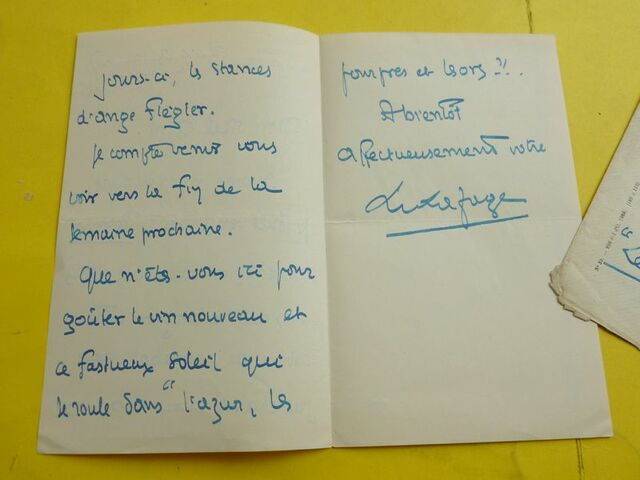 jours-ci, les stances
d'ange Flégier.
je compte venir vous
voir vers la fin de la
semaine prochaine.
Que n'êtes-vous ici pour
goûter le vin nouveau et
ce fastueux soleil qui
se roule dans "l'azur, les
pourpres et les ors"!!.
A bientôt
affectueusement votre
Lafage